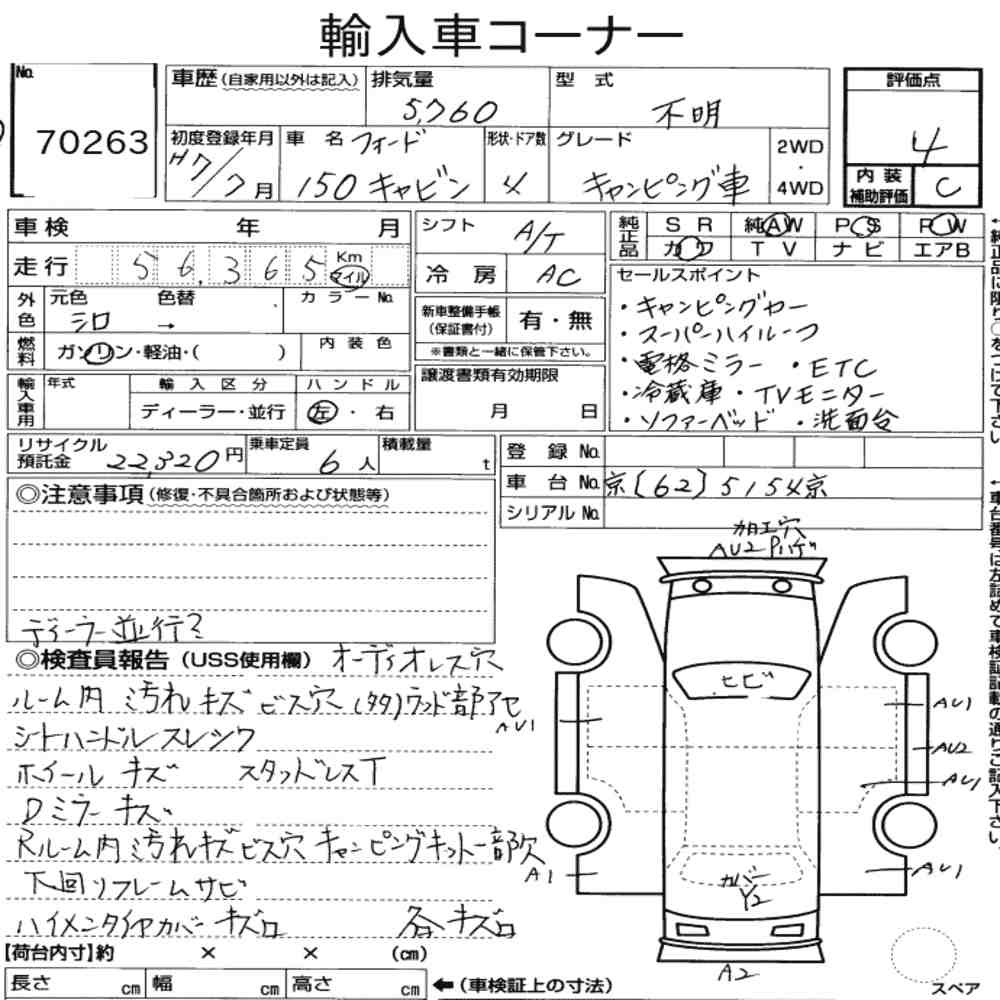 輸入車コーナー
No. 70263
車歴 (自家用以外は記入) 排気量 5,760 型式 不明
初度登録年月 H7/7月 車名 フォード 150 キャビン 形状・ドア数 4 グレード キャンピング車 2WD・4WD
評価点 4
内装補助評価 C
車検 年 月
走行 56,365 Km マイル
シフト A/T
冷房 AC
純正品 SR 純AW PS PW
カワ TV ナビ エアB
外色 元色 シロ 色替 → カラーNo.
燃料 ガソリン・軽油・( ) 内装色
新車整備手帳(保証書付) 有・無
※書類と一緒に保管下さい。
輸入車用 年式 輸入区分 ディーラー・並行 ハンドル 左・右
譲渡書類有効期限 月 日
セールスポイント
・キャンピングカー
・スーパーハイルーフ
・電格ミラー ・ETC
・冷蔵庫・TVモニター
・ソファーベッド ・洗面台
←純正品に限り○をつけて下さい。
リサイクル預託金 22,320円 乗車定員 6人 積載量 t
登録No.
車台No. 京[62]5154京
シリアルNo.
←車台番号は左詰めで車検証記載の通りご記入下さい。
◎注意事項 (修復・不具合箇所および状態等)
ディーラー並行?
◎検査員報告 (USS使用欄) オーディオレス穴
ルーム内 汚れ キズ ビス穴 (タタ)ウッド部アセ
シートハンドルスレシワ
ホイール キズ スタッドレスT
Dミラー キズ
Rルーム内汚れキズ ビス穴 キャンピングキット一部欠
下回リフレームサビ
ハイメンタイヤカバー キズ
各キズ
加工穴
AU2 Pハゲ
ヒビ
AU1
AU1
AU2
AU1
A1
AU1
カバー
Y2
A2
スペア
【荷台内寸】約 × × (cm)
長さ cm 幅 cm 高さ cm ←(車検証上の寸法)